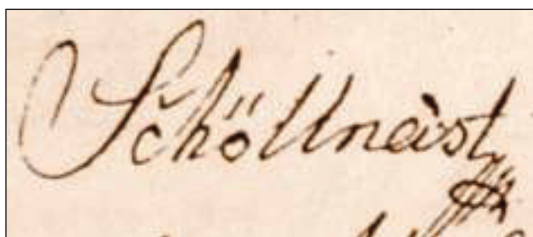 Schöllnast